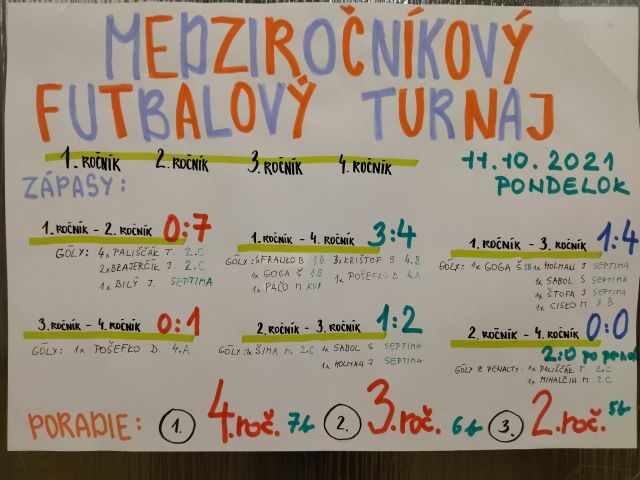 MEDZIROČNÍKOVÝ
FUTBALOVÝ TURNAJ
1. ROČNÍK 2. ROČNÍK 3. ROČNÍK 4. ROČNÍK
11.10.2021
PONDELOK
ZÁPASY:
1. ROČNÍK - 2. ROČNÍK 0:7
GÓLY: 4x PALIŠČÁK T. 2.C
2x BRAJERČÍK J. 2.C
1x BILÝ J. SEPTIMA
1. ROČNÍK - 4. ROČNÍK 3:4
GÓLY: FRANKO B 1.B 3x KRIŠTOF S 4.B
1x GOGA Š 1.B 1x POŠEFKO D. 4.A
1x PAĽO M
1. ROČNÍK - 3. ROČNÍK 1:4
GÓLY: 1x GOGA Š. 1B 1x HOLMAN J SEPTIMA
1x SABOL S SEPTIMA
1x ŠTOFA J SEPTIMA
1x CISKO M 3.B
3. ROČNÍK - 4. ROČNÍK 0:1
GÓLY: 1x POŠEFKO D. 4.A
2. ROČNÍK - 3. ROČNÍK 1:2
GÓLY: 1x ŠIMA M. 2.C 1x SABOL S SEPTIMA
1x HOLMAN J SEPTIMA
2. ROČNÍK - 4. ROČNÍK 0:0
2:0 po
GÓLY Z PENALT: 1x PALIŠČÁK T. 2.C
1x MIHALČIN M 2.C
PORADIE: 1. 4. roč. 7b 2. 3. roč. 6b 3. 2. roč. 5b